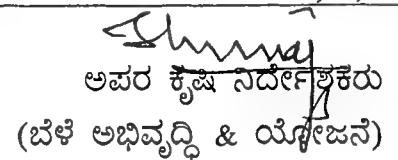 ಅಪರ ಕೃಷಿ ನಿರ್ದೇಶಕರು
(ಬೆಳೆ ಅಭಿವೃದ್ಧಿ & ಯೋಜನೆ)